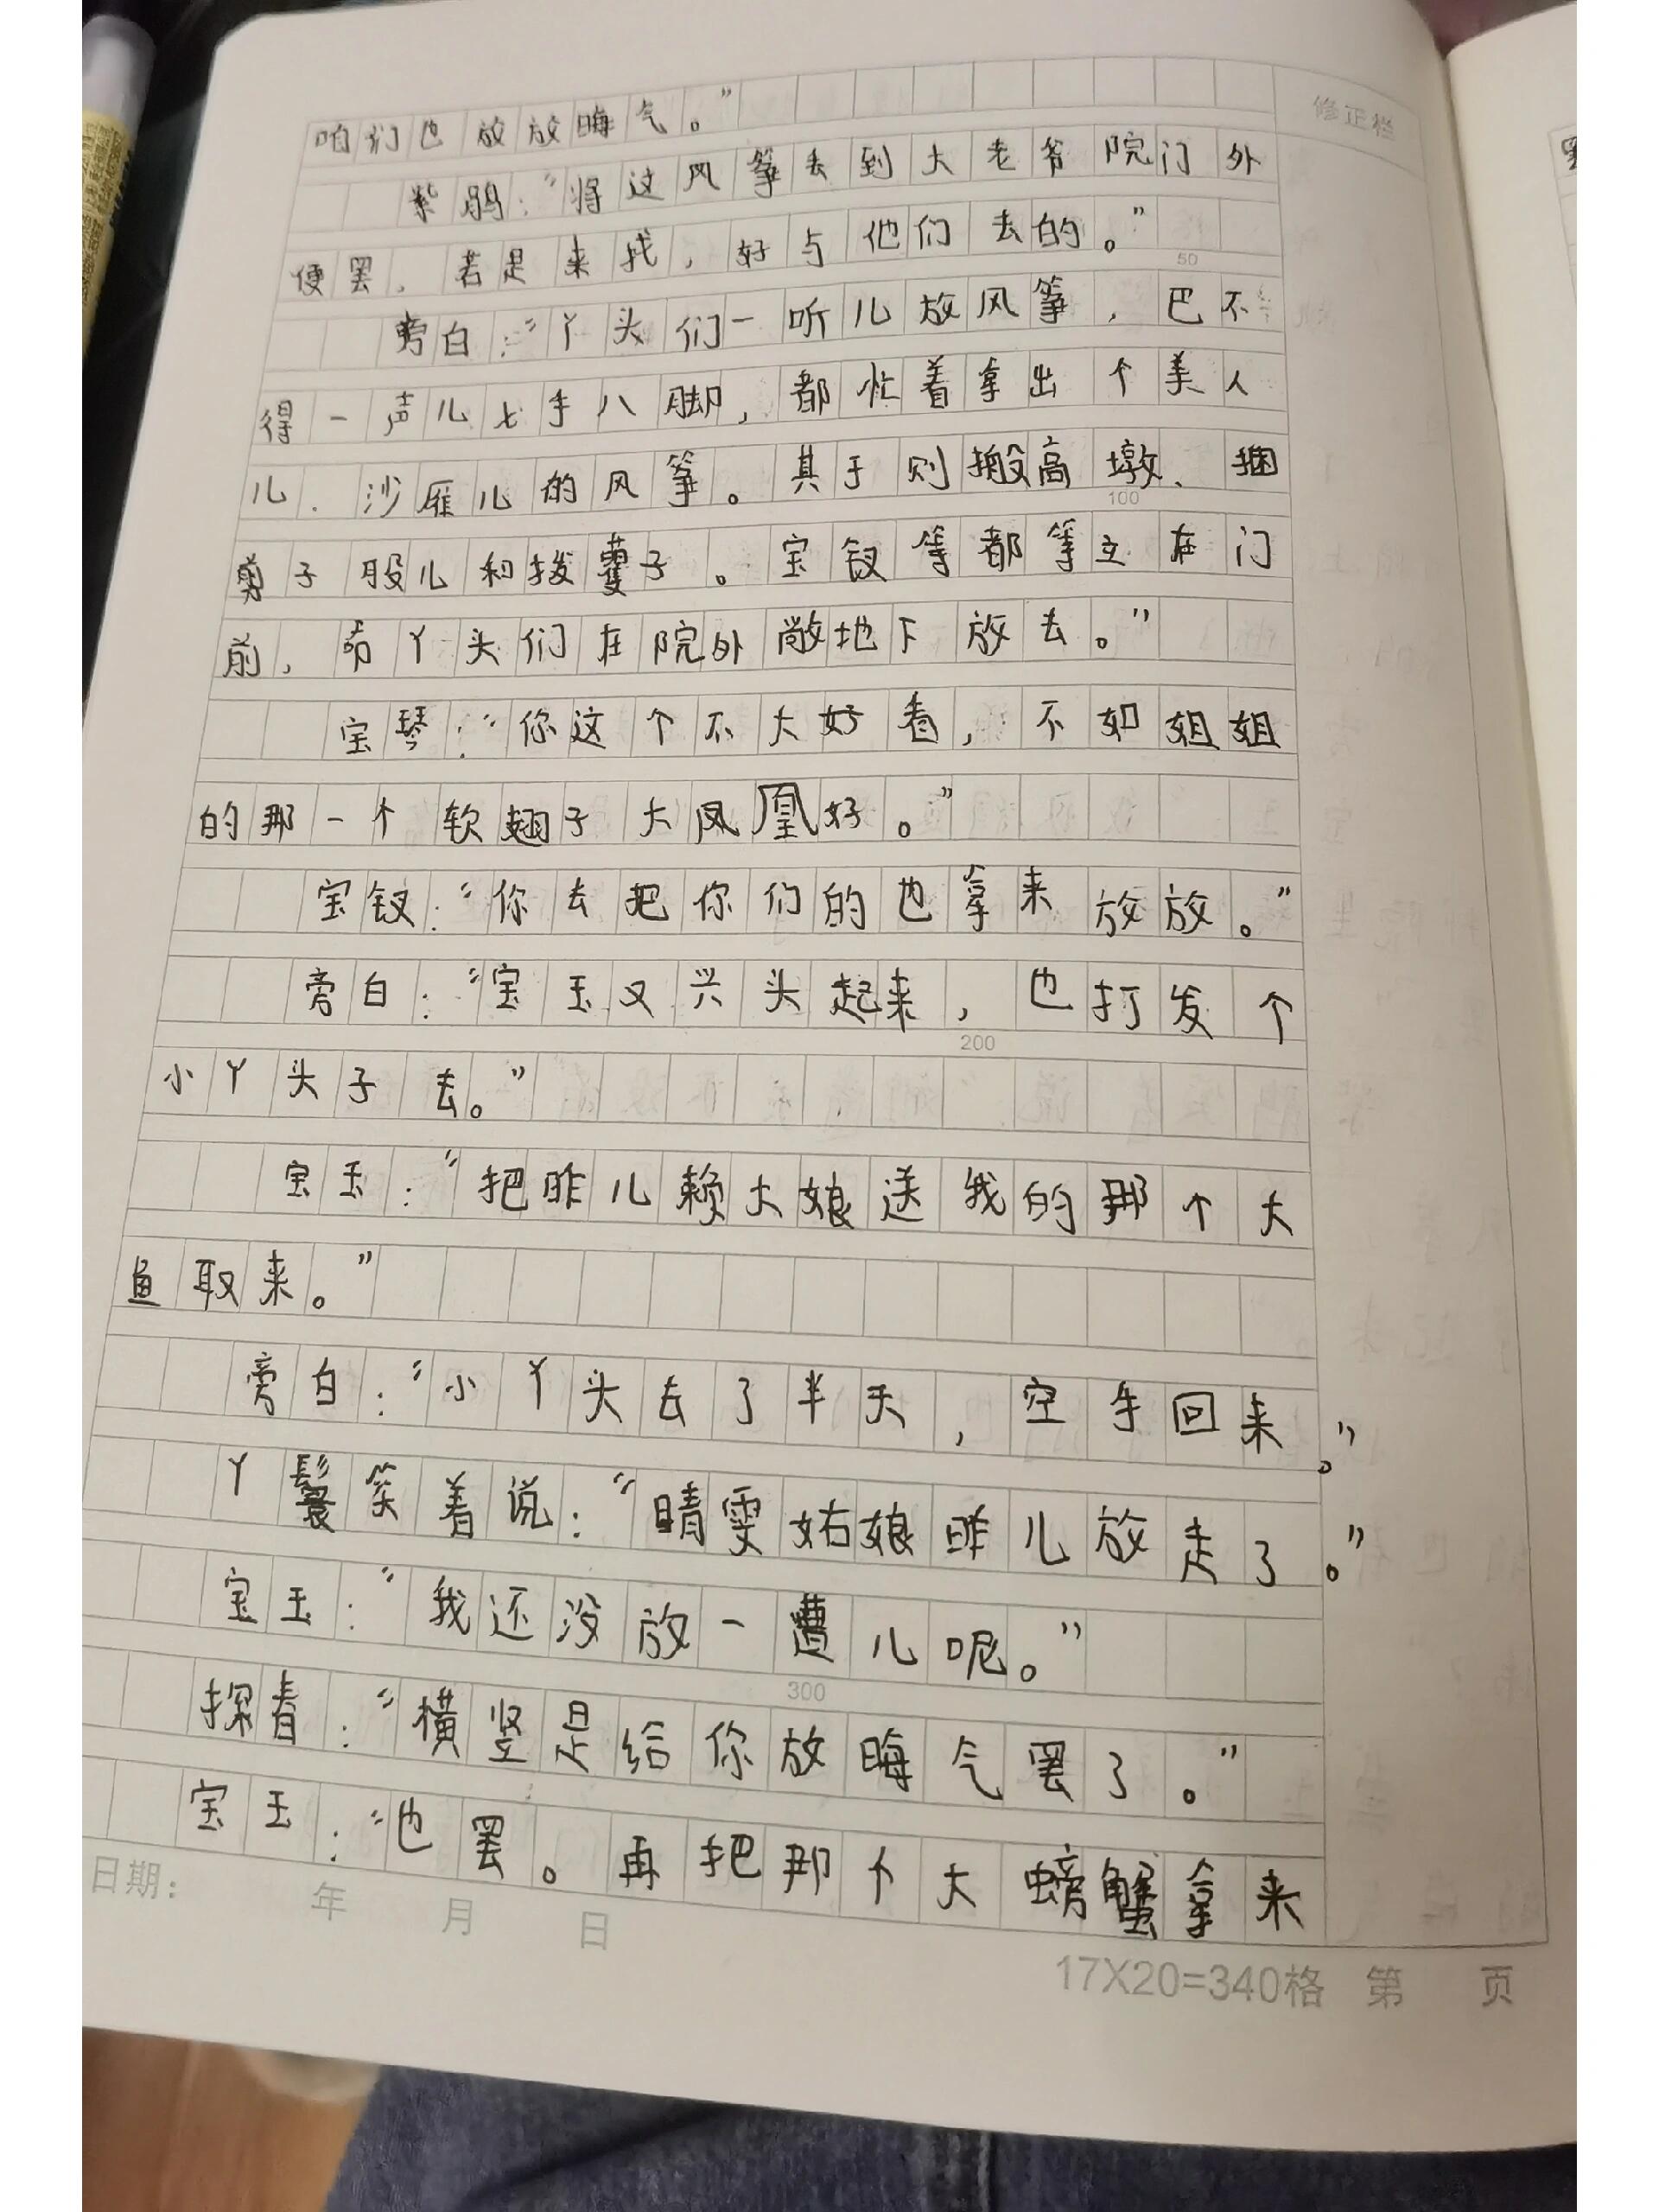 修正栏
咱们也放放晦气。”
紫鹃:“将这风筝去到大老爷院门外
便罢,若是来找,好与他们去的。”
50
旁白:“丫头们一听儿放风筝,巴不
得一声儿七手八脚,都忙着拿出个美人
儿、沙雁儿的风筝。其于则搬高墩、捆
100
剪子股儿和拨籰子。宝钗等都等立在门
前,命丫头们在院外敞地下放去。”
宝琴:“你这个不大好看,不如姐姐
的那一个软翅子大凤凰好。”
宝钗:“你去把你们的也拿来放放。”
旁白:“宝玉又兴头起来,也打发个
200
小丫头子去。”
宝玉:“把昨儿赖大娘送我的那个大
鱼取来。”
旁白:“小丫头去了半天,空手回来。”
丫鬟笑着说:“晴雯姑娘昨儿放走了。”
宝玉:“我还没放一遭儿呢。”
300
探春:“横竖是给你放晦气罢了。”
宝玉:“也罢。再把那个大螃蟹拿来
日期: 年 月 日
17X20=340格 第 页